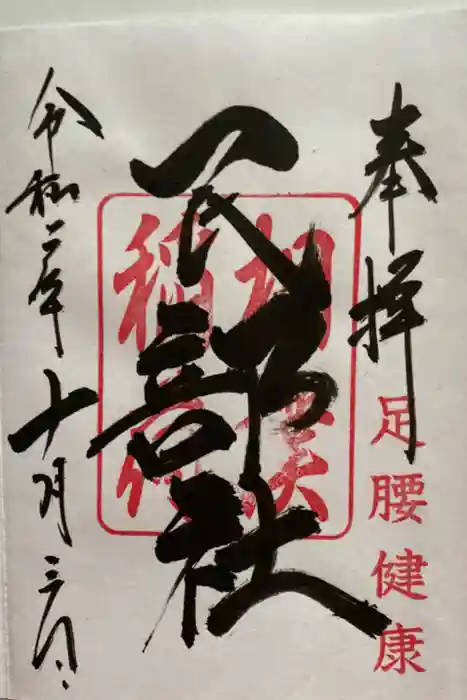 奉拝
足腰健康
相撲
稲荷
民部社
令和二年十月三日